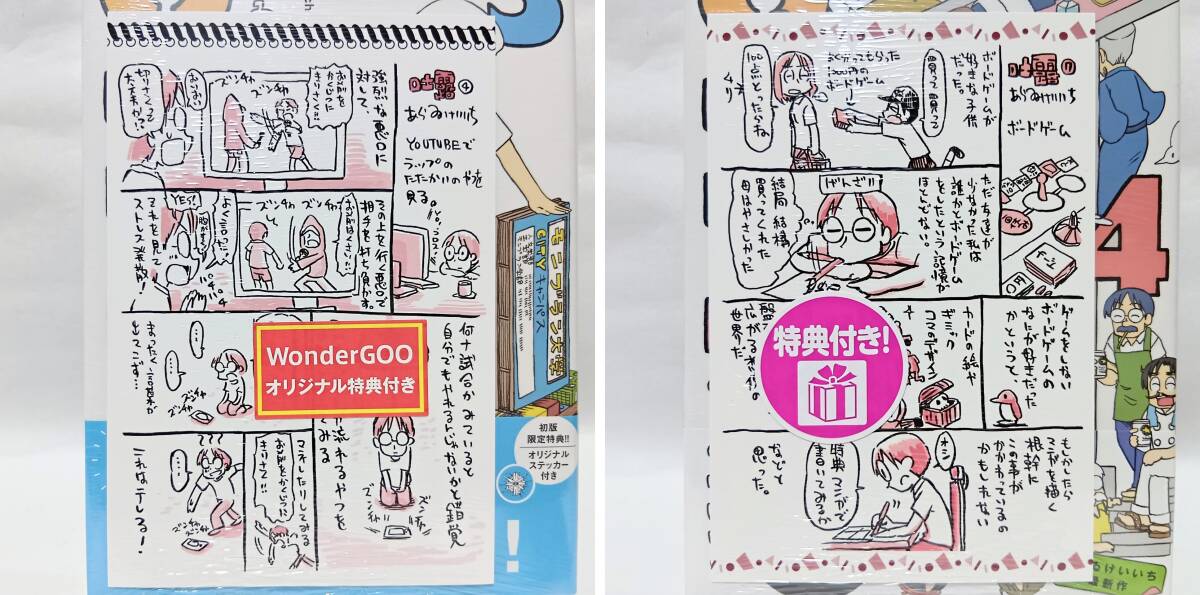 吐露④
あらゐけいいち
YOUTUBEで
ラップの
たたかいのやつを
見る。
強烈な悪口に
対して、
お前を
かまいつに
きりさく!!
ズンチャ
ズンチャ
おおお
切りさくって
大丈夫か!?
その上を行く悪口で
相手を打ち負かす。
ズンチャ
ズンチャ
YES!
よく言った!
パチ
パチ
これを見て
ストレス発散!
何十試合かみていると
自分でもやれるんじゃないかと錯覚
流れるやつを
ズン
ズンチャ
まったく言葉が
出てこず…
ズンチャ
ズンチャ
マネしたりしてみる
お前をかくいつに
きりさく!!…
ズンチャ
ズンチャ
これはテレる!
WonderGOO
オリジナル特典付き
モンブラン大学
CITYキャンパス
初版
限定特典!!
オリジナル
ステッカー
付き
!
吐露⑦
あらゐけいいち
ボードゲーム
ボードゲームが
好きな子供
だった。
買って買って
1000円の
ボードゲーム
100点とったらね
ムリ
ただ友達が
少なかった私は
誰かとボードゲーム
をしたという記憶が
ほとんどない。
げんざい
結局結構
買ってくれた
母はやさしかった
ゲームをしない
ボードゲームの
なにが好きだった
かというって、
カードの絵や
コマのデザイン
ギミック
盤
広がる
世界だ。
もしかしたら
ミがを描く
根幹に
この事が
かかわっているの
かもしれない
などと
思った。
特典マンガで
書いてみるか
特典付き!
4
るけいいち
最新作